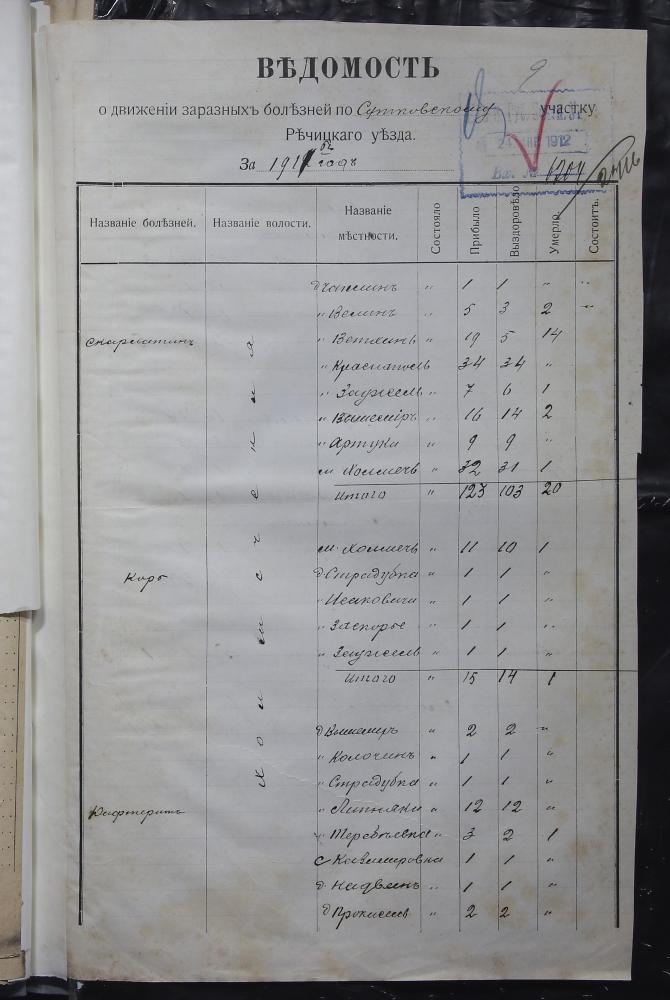 ВѢДОМОСТЬ
о движеніи заразныхъ болѣзней по Сутковскому участку
Рѣчицкаго уѣзда.
За 1911 годъ
24 1912
Вх. № 1204
Названіе болѣзней. Названіе волости. Названіе мѣстности. Состояло Прибыло Выздоровѣло Умерло Состоитъ.
д Чаплинъ " 1 1 " "
" Велинъ " 5 3 2 "
Скарлатинъ " Ветхинь " 19 5 14
" Краснаполь 34 34 "
" Заужель " 7 6 1
" Вышеміръ " 16 14 2
" Артуки " 9 9 "
м Холмечь " 32 31 1
Итого " 123 103 20
Холмичская
м. Холмечь " 11 10 1
Корь д. Страдубка " 1 1 "
" Исаковичи " 1 1 "
" Заспорье " 1 1 "
" Заужель " 1 1 "
Итого " 15 14 1
д Вышемиръ " 2 2 "
" Колочинъ " 1 1 "
" Страдубка " 1 1 "
Дифтеритъ " Липняки " 12 12 "
" Теребѣевка " 3 2 1
с Казимировка 1 1 "
д. Надвинъ " 1 1 "
д " 2 2 "